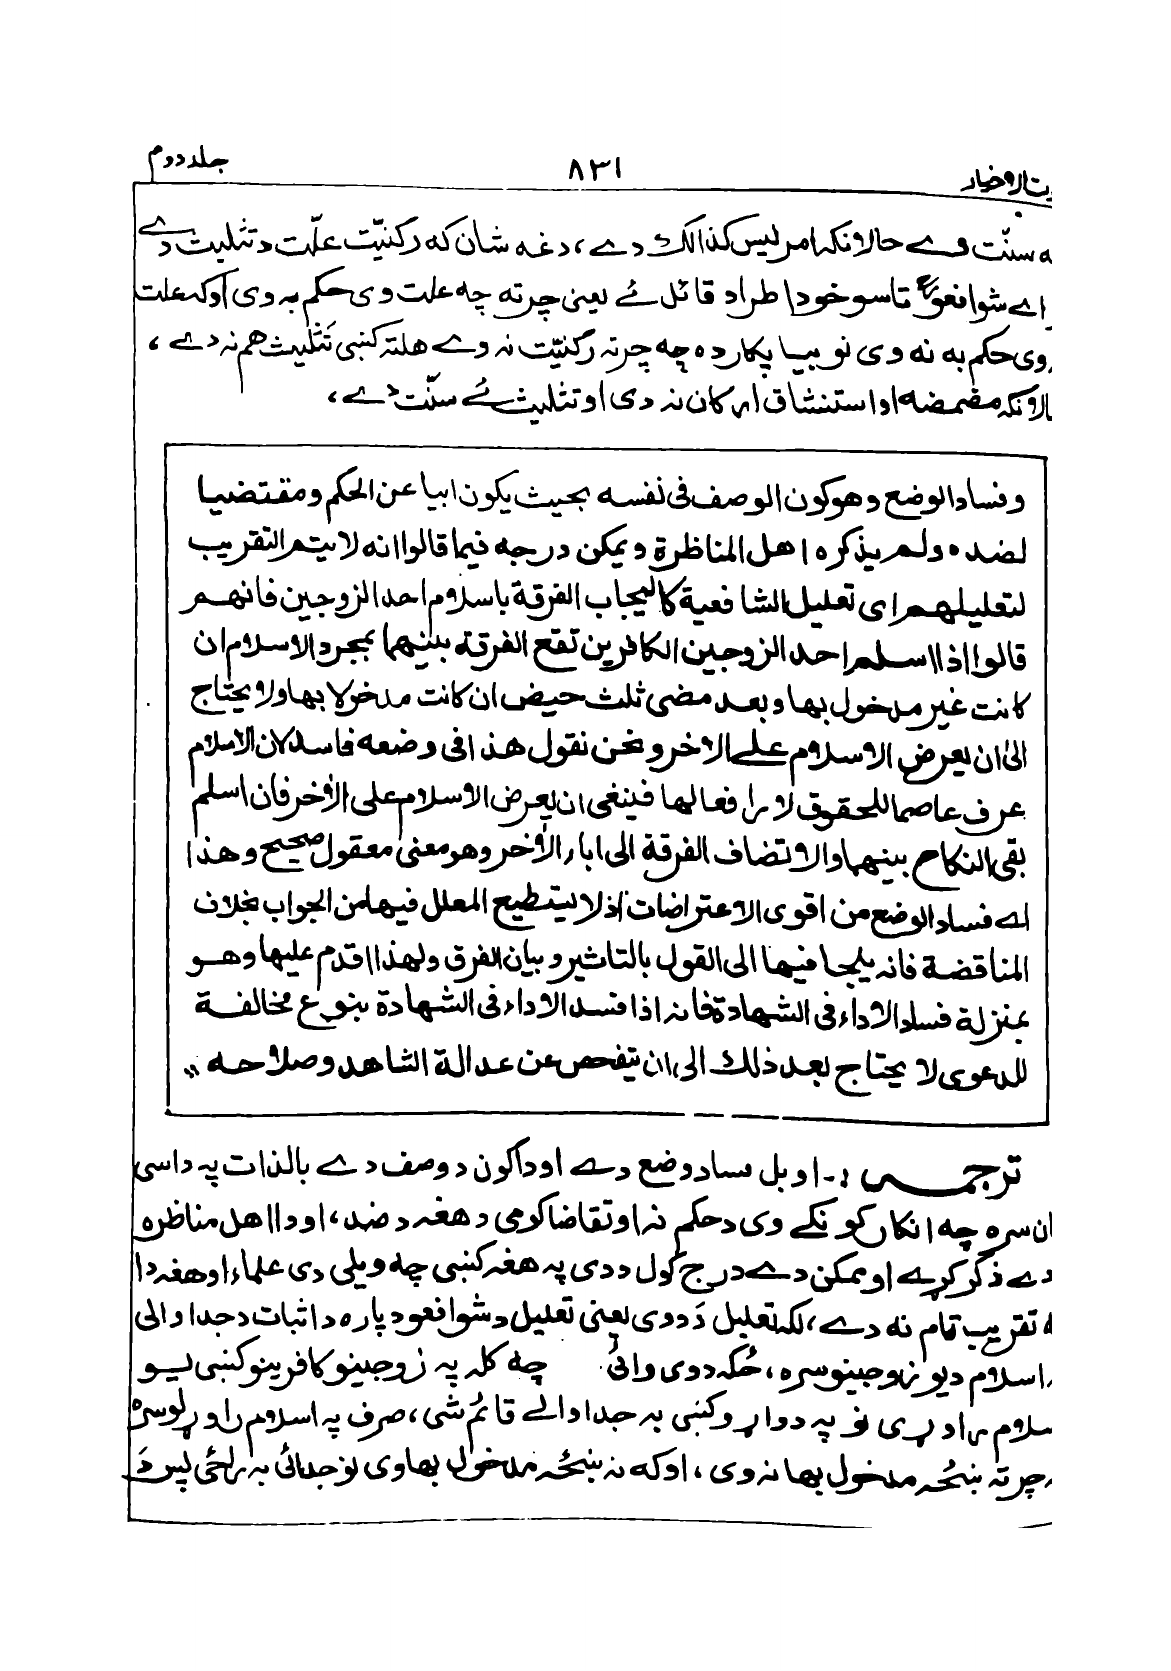 جلد دوم
٨٣١
سنّت وے حالانکہ امر لیس کذالک دے، دغہ شان کہ رکنیّت علّت د تثلیث دے
اے شوافعو تاسو خود اطراد قائل ئے یعنی چرتہ چہ علت وی حکم بہ وی او کہ علت
وی حکم بہ نہ وی نو بیا پکار دہ چہ چرتہ رکنیّت نہ وے ھلتہ کنبی تثلیث ھم نہ دے،
مضمضہ او استنشاق ارکان نہ دی او تثلیث ئے سنّت دے،
وفساد الوضع وهو كون الوصف فى نفسه بحيث يكون ابيا عن الحكم ومقتضيا
لضده ولم يذكره اهل المناظرة ويمكن درجه فيما قالوا انه لا يتم التقريب
لتعليلهم اى تعليل الشافعية كايجاب الفرقة باسلام احد الزوجين فانهم
قالوا اذا اسلم احد الزوجين الكافرين تقع الفرقة بينهما بمجرد الاسلام ان
كانت غير مدخول بها وبعد مضى ثلث حيض ان كانت مدخولا بها ولا يحتاج
الىٰ ان يعرض الاسلام علے الاخر ونحن نقول هذا فى وضعه فاسد لان الاسلام
عرف عاصما للحقوق لا رافعا لها فينبغى ان يعرض الاسلام على الاٰخر فان اسلم
بقى النكاح بينهما والا تضاف الفرقة الى اباء الاٰخر وهو معنى معقول صحيح وهذا
اے فساد الوضع من اقوى الاعتراضات اذ لا يستطيع المعلل فيها من الجواب بخلاف
المناقضة فانه يلجا فيها الى القول بالتاثير وبيان الفرق ولهذا اقدم عليها وهو
بمنزلة فساد الاداء فى الشهادة فانه اذا فسد الاداء فى الشهادة بنوع مخالفة
للدعوى لا يحتاج بعد ذلك الى ان يتفحص عن عدالة الشاهد وصلاحه ״
ترجمہ :- او بل فساد وضع دے او دا کون د وصف دے بالذات پہ داسی
سرہ چہ انکار کونکے وی د حکم نہ او تقاضا کومی د ھغہ د ضد، او دا اھل مناظرہ
دے ذکر کرے او ممکن دے درج کول د دی پہ ھغہ کنبی چہ ویلی دی علماء او ھغہ دا
تقریب تام نہ دے، لکہ تعلیل دَ دوی یعنی تعلیل د شوافعو د پارہ د اثبات د جدا والی
اسلام د یو زوجینو سرہ، حُکہ دوی وائی چہ کلہ پہ زوجینو کافرینو کنبی یو
راوړی نو پہ دواړو کنبی بہ جدا والے قائم شی، صرف پہ اسلام راوړلو سرہ
چرتہ ښځہ مدخول بھا نہ وی، او کہ نہ ښځہ مدخول بھا وی نو جدائی بہ راځی پس دَ